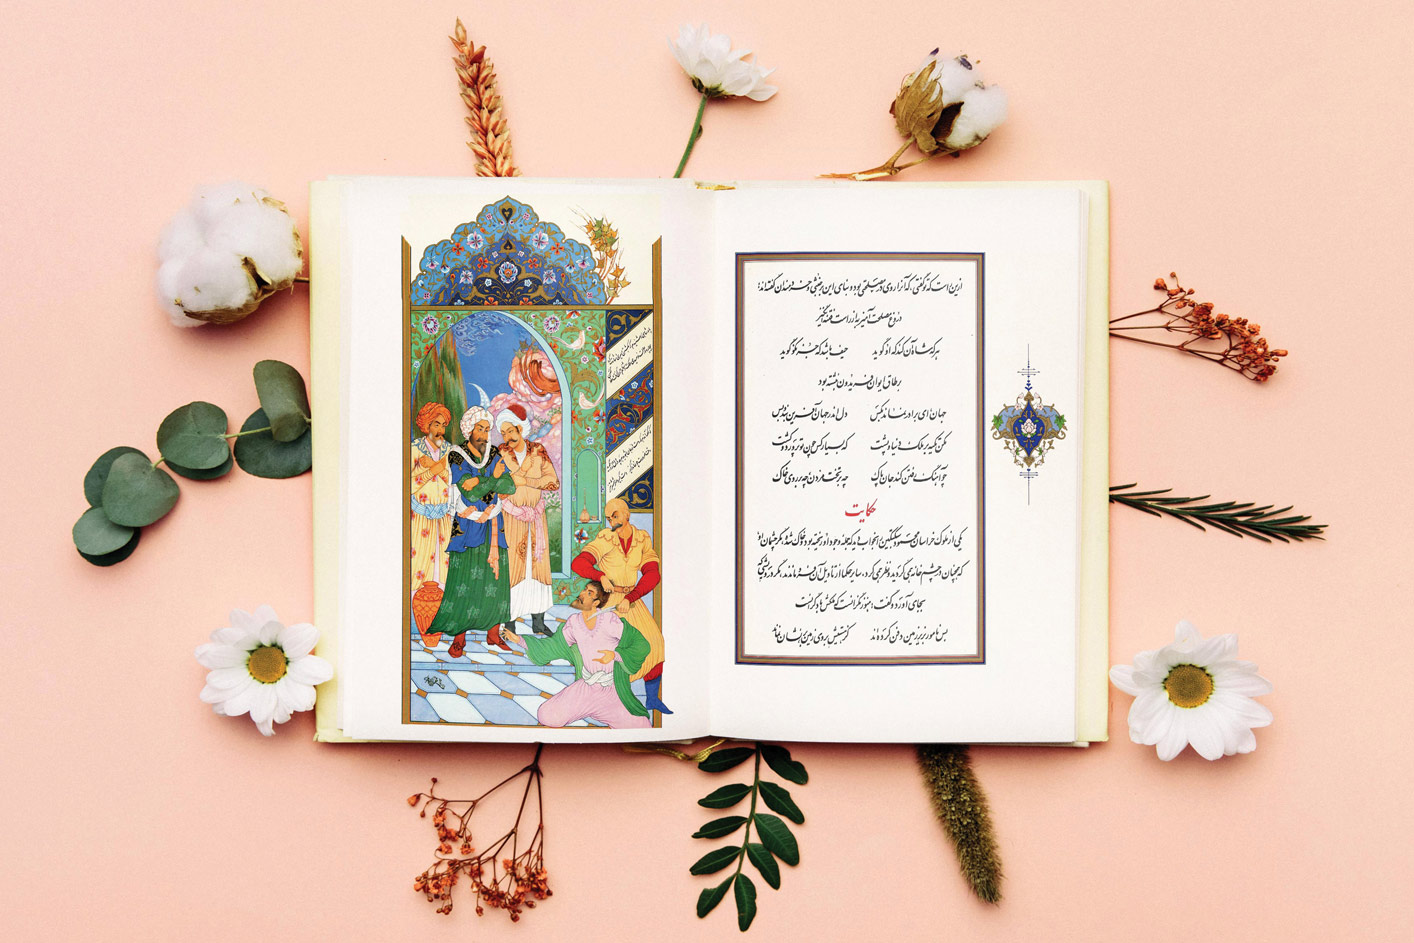 ازین است که تو گفتی، که آنرا روی در مصلحتی بود و بنای این بر خبثی و خردمندان گفته‌اند:
دروغ مصلحت آمیز به از راست فتنه انگیز
هر که شاه آن کند که او گوید حیف باشد که جز نکو گوید
بر طاق ایوان فریدون نبشته بود
جهان ای برادر نماند بکس دل اندر جهان آفرین بند و بس
مکن تکیه بر ملک دنیا و پشت که بسیار کس چون تو پرورد و کشت
چو آهنگ رفتن کند جان پاک چه بر تخت مردن چه بر روی خاک
حکایت
یکی از ملوک خراسان محمود سبکتگین را بخواب دید که جمله وجود او ریخته بود و خاک شده مگر چشمان او
که همچنان در چشم خانه همی گردید و نظر همی کرد، سایر حکما از تاویل آن فرو ماندند، مگر درویشی که
بجای آورد و گفت: هنوز نگرانست که ملکش با دگرانست
بس نامور بزیر زمین دفن کرده‌اند کز هستیش بروی زمین بر نشان نماند